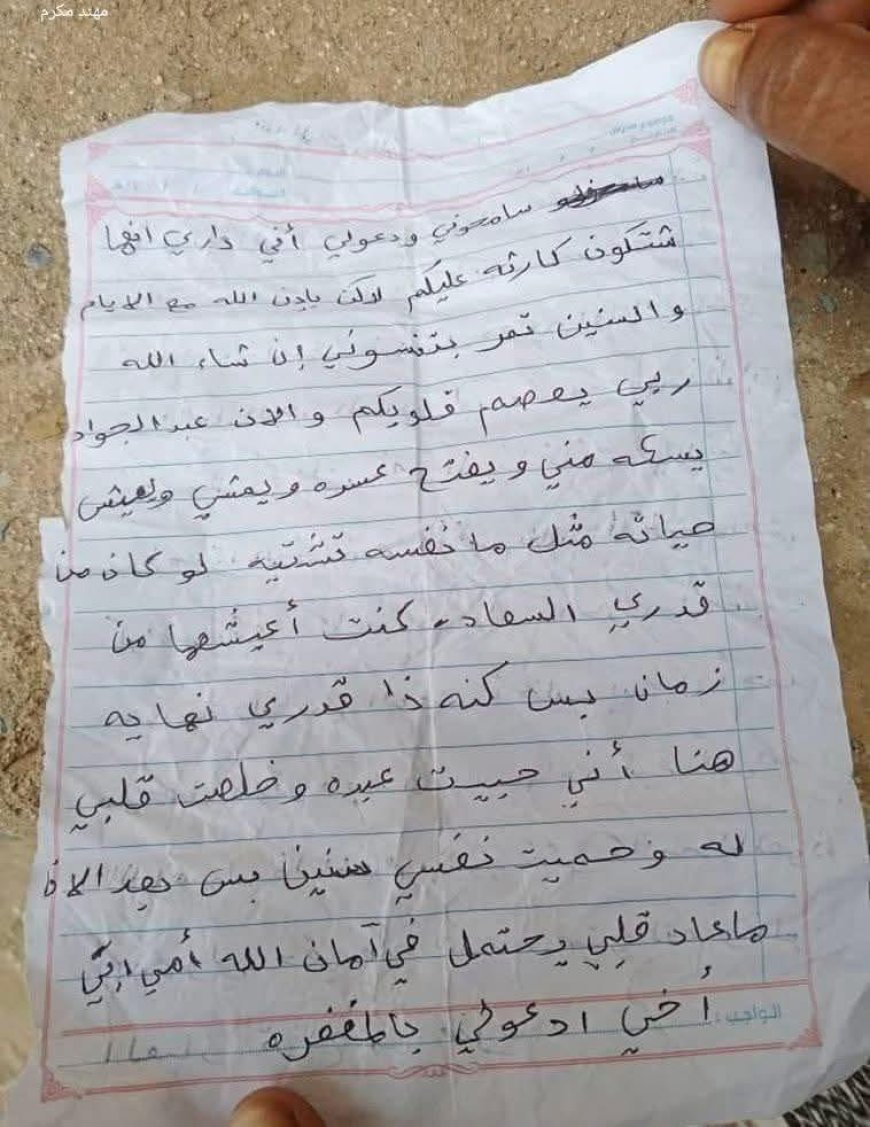 مهند مكرم
سامحوني ودعولي أني داري انها
شتكون كارثه عليكم لاكن بإذن الله مع الايام
والسنين تمر بتنسوني إن شاء الله
ربي يعصم قلوبكم والان عبد الجواد
مني ويفتح ويمشي ويعيش
حياته مثل ما نفسه تشتيه لو كان من
قدري السعاده كنت أعيشها من
زمان بس كنه ذا قدري نهايه
هنا أني حبيت عبده وخلصت قلبي
له وحميت نفسي سنين بس بعد الان
ماعاد قلبي يحتمل في آمان الله أمي ابي
أخي ادعولي بالمغفره
الواجب: